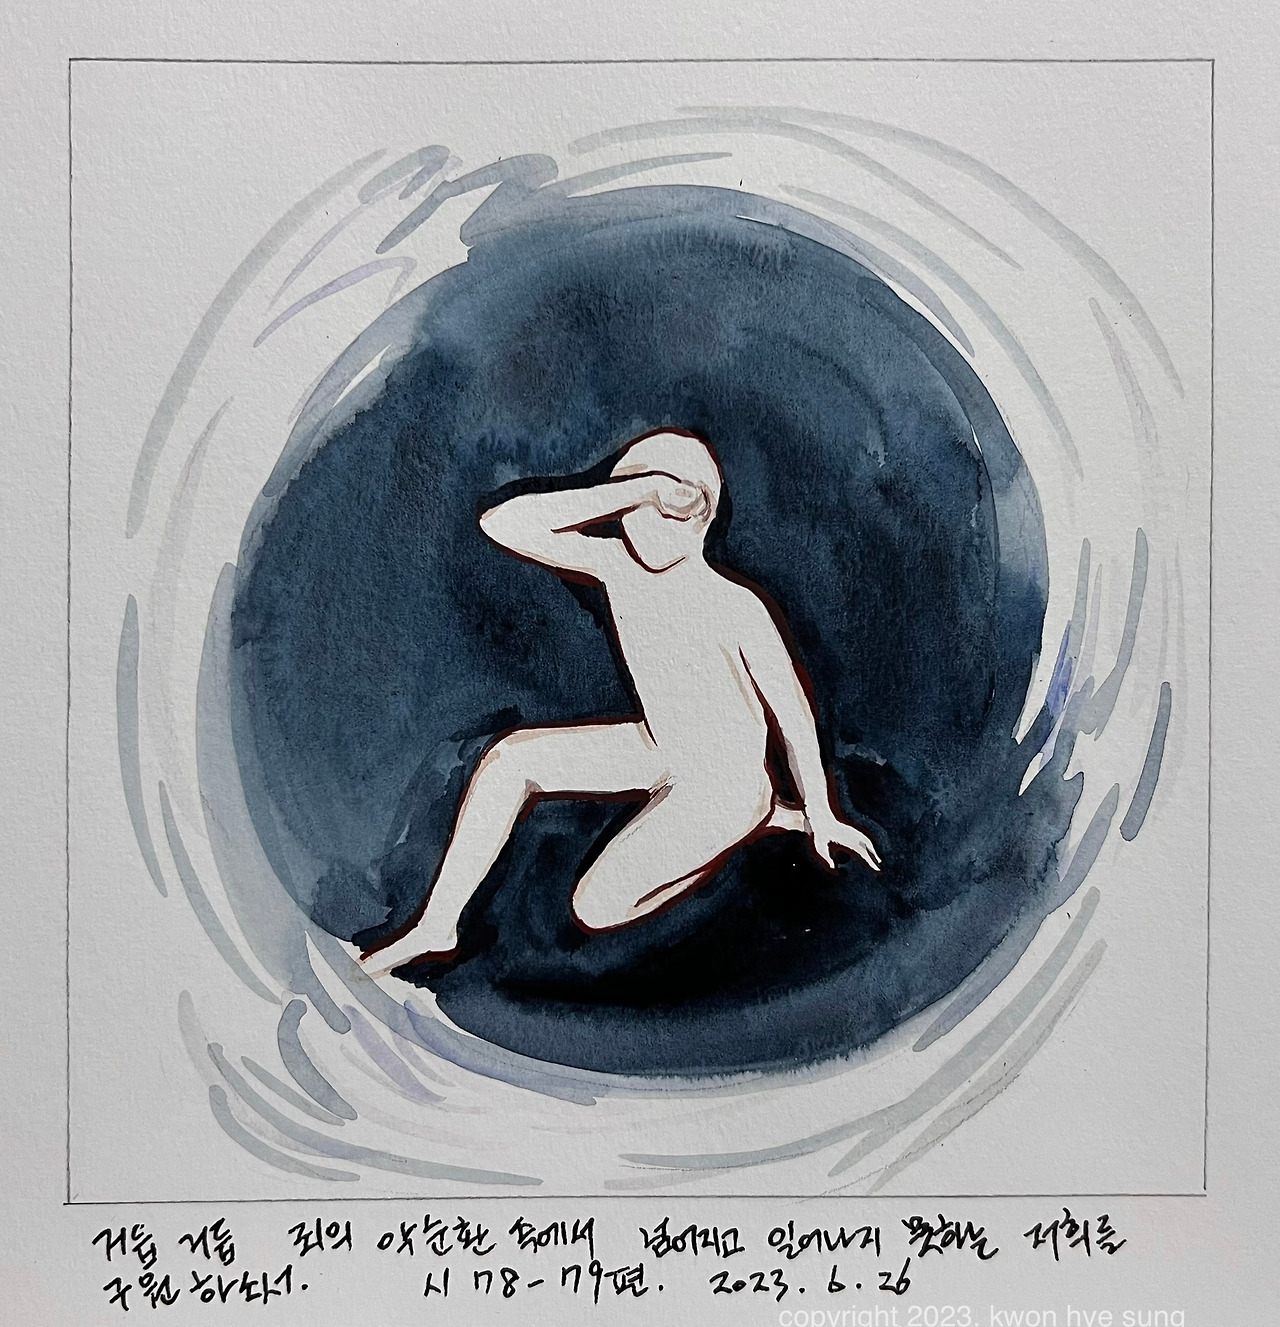 거듭 거듭 죄의 악순환 속에서 넘어지고 일어나지 못하는 저희를
구원하소서. 시 78-79편. 2023. 6. 26
copyright 2023. kwon hye sung